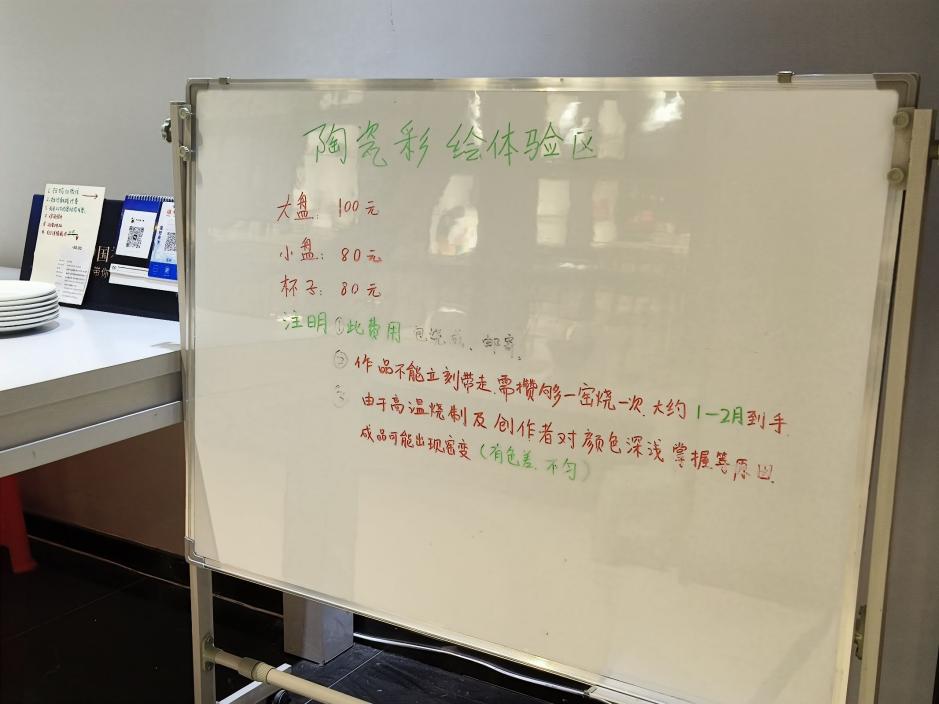 陶瓷彩绘体验区
大盘：100元
小盘：80元
杯子：80元
注明①此费用 包烧成、邮寄。
② 作品不能立刻带走,需攒够多一窑烧一次,大约1-2月到手.
③ 由于高温烧制及创作者对颜色深浅掌握等原因.
成品可能出现窑变(有色差.不匀)